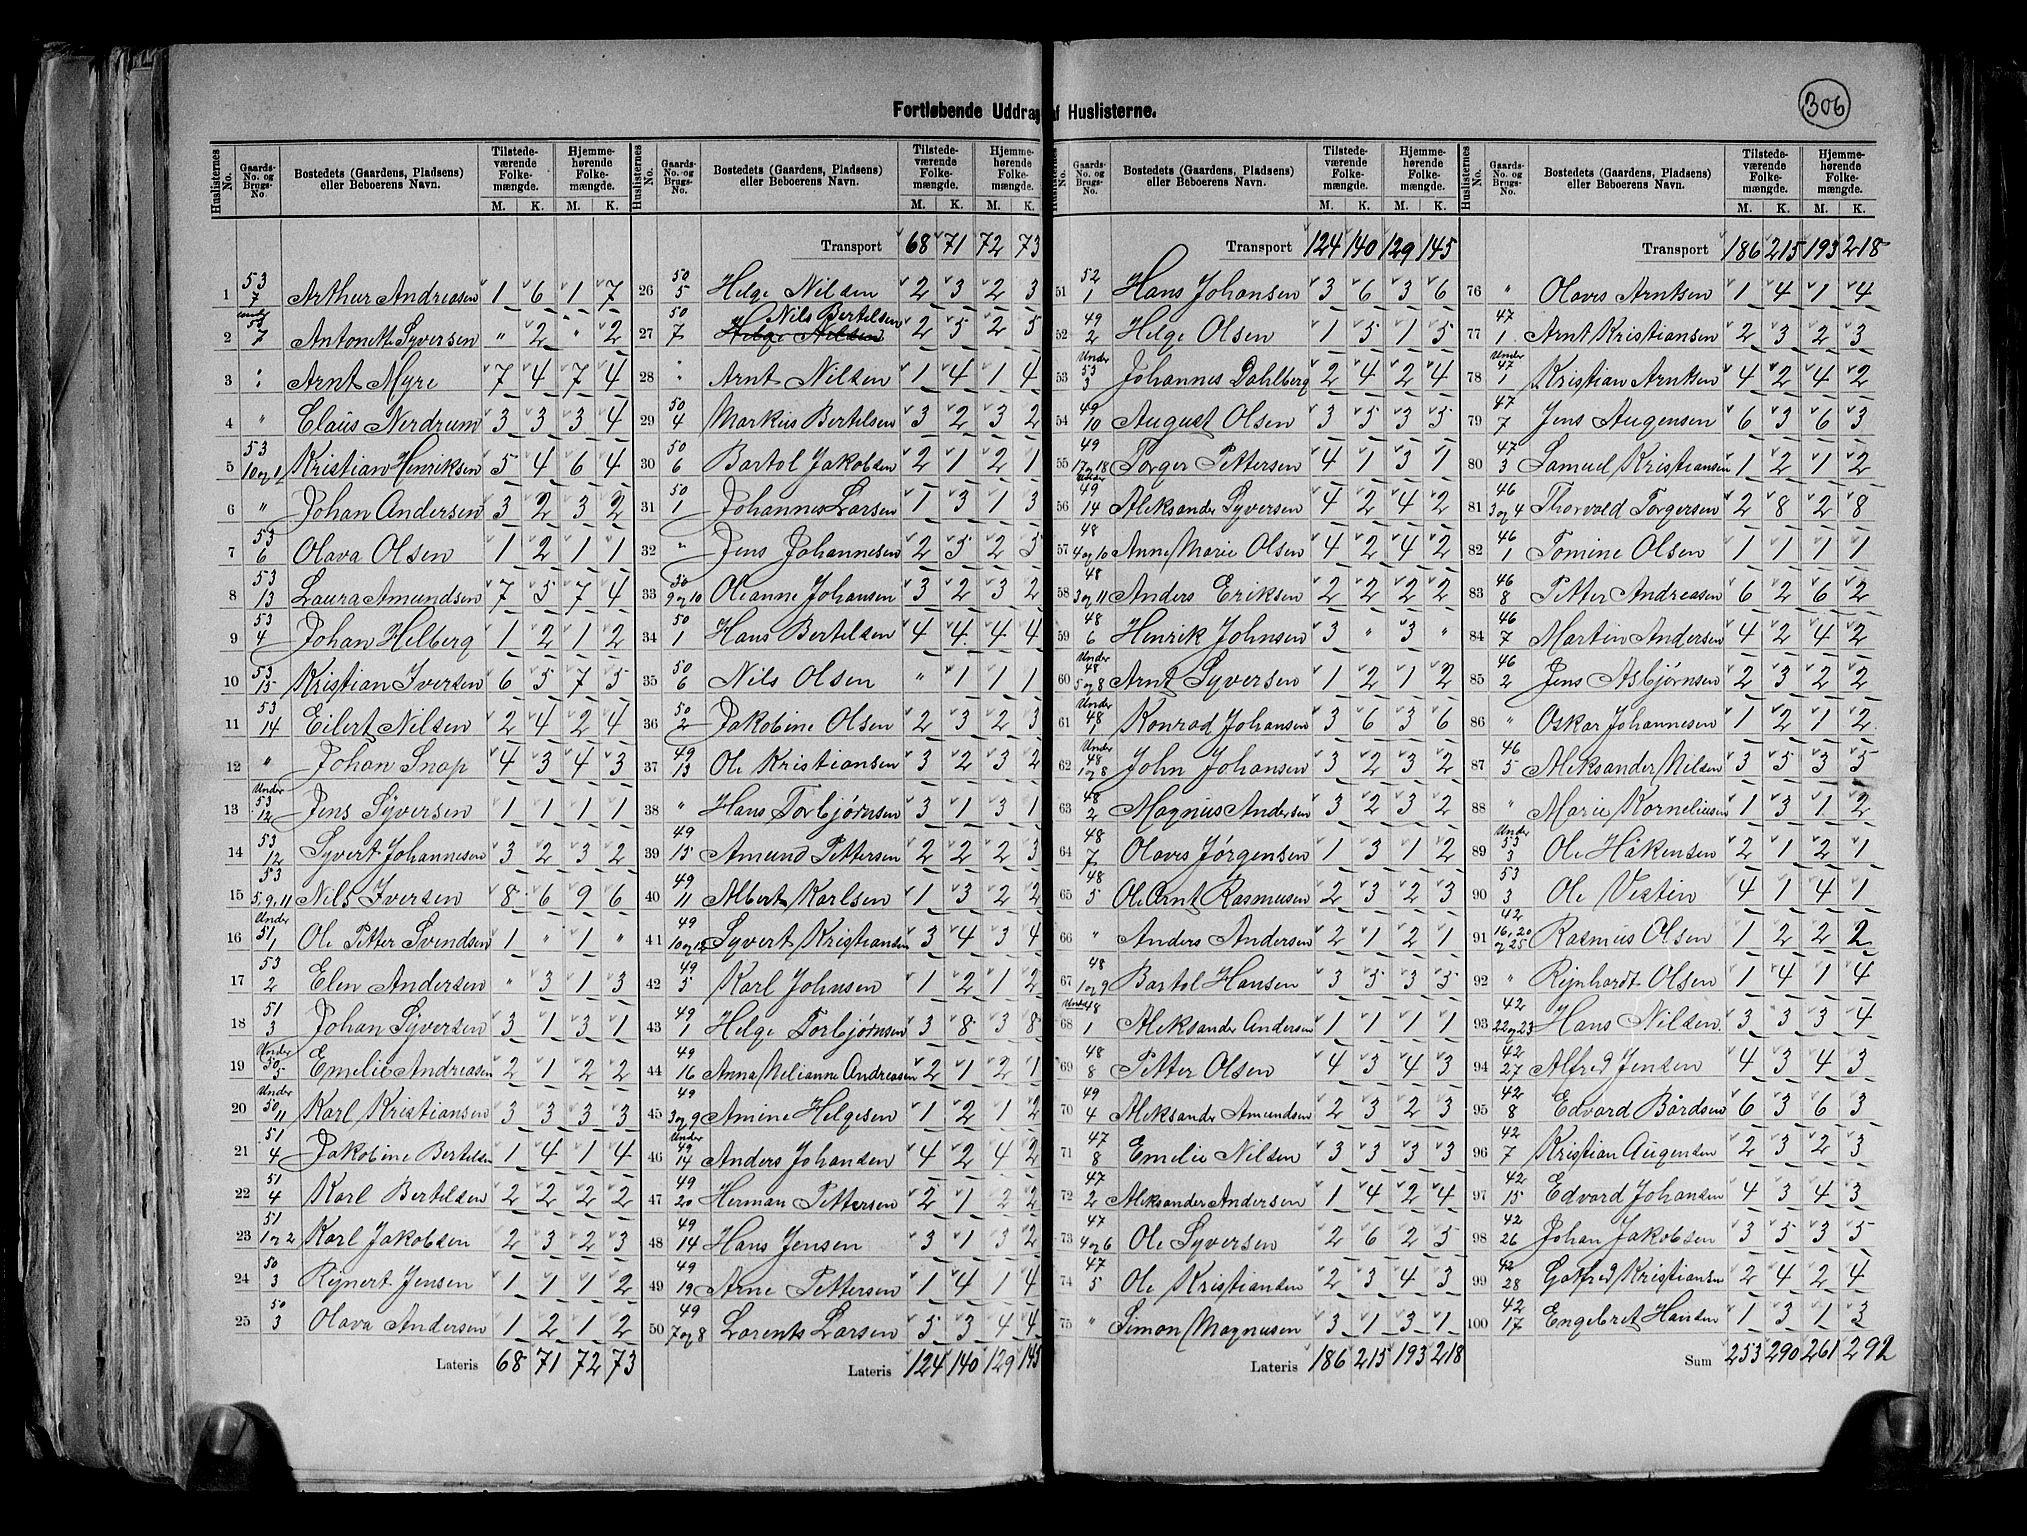 306
Fortløbende Uddrag af Huslisterne.
Huslisternes No. | Gaards-No. og Brugs-No. | Bostedets (Gaardens, Pladsens) eller Beboerens Navn. | Tilstedeværende Folkemængde. M. K. | Hjemmehørende Folkemængde. M. K.
1 53/7 Arthur Andreasen 1 6 1 7
2 under 53/7 Antonette Syversen " 2 " 2
3 " Arnt Myre 7 4 7 4
4 " Claus Nerdrum 3 3 3 4
5 53/10 og 1 Kristian Henriksen 5 4 6 4
6 " Johan Andersen 3 2 3 2
7 53/6 Olava Olsen 1 2 1 1
8 53/13 Laura Amundsen 7 5 7 4
9 53/4 Johan Helberg 1 2 1 2
10 53/15 Kristian Iversen 6 5 7 5
11 53/14 Eilert Nilsen 2 4 2 4
12 " Johan Snap 4 3 4 3
13 Under 53/12 Jens Syversen 1 1 1 1
14 53/12 Syvert Johannesen 3 2 3 2
15 53/5, 9, 11 Nils Iversen 8 6 9 6
16 Under 51/1 Ole Petter Svendsen 1 " 1 "
17 53/2 Elen Andersen " 3 1 3
18 51/3 Johan Syversen 3 1 3 1
19 Under 50/5 Emelie Andreasen 2 1 2 2
20 Under 50/11 Karl Kristiansen 3 3 3 3
21 51/4 Jakobine Bertelsen 1 4 1 4
22 51/4 Karl Bertelsen 2 2 2 2
23 51/1 og 2 Karl Jakobsen 2 3 2 3
24 50/3 Rynert Jensen 1 1 1 2
25 50/3 Olava Andersen 1 2 1 2
Lateris 68 71 72 73
Transport 68 71 72 73
26 50/5 Helge Nilsen 2 3 2 3
27 50/7 Nils Bertelsen Helge Nilsen 2 5 2 5
28 " Arnt Nilsen 1 4 1 4
29 50/4 Markus Bertelsen 3 2 3 2
30 50/6 Bartol Jakobsen 2 1 2 1
31 50/1 Johannes Larsen 1 3 1 3
32 " Jens Johannesen 2 5 2 5
33 50/9 og 10 Oleanne Johansen 3 2 3 2
34 50/1 Hans Bertelsen 4 4 4 4
35 50/6 Nils Olsen " 1 1 1
36 50/2 Jakobine Olsen 2 3 2 3
37 49/13 Ole Kristiansen 3 2 3 2
38 " Hans Torbjørnsen 3 1 3 1
39 49/15 Amund Pettersen 2 2 2 3
40 49/11 Albert Karlsen 1 3 2 2
41 49/10 og 12 Syvert Kristiansen 3 4 3 4
42 49/5 Karl Johnsen 1 2 1 2
43 49/1 Helge Torbjørnsen 3 8 3 8
44 49/16 Anna Melianne Andreasen 2 1 2 1
45 49/3 og 9 Amine Helgesen 1 2 1 2
46 Under 49/14 Anders Johansen 4 2 4 2
47 49/20 Herman Pettersen 2 1 2 2
48 49/14 Hans Jensen 3 1 3 2
49 49/19 Arne Pettersen 1 4 1 4
50 49/7 og 8 Lorents Larsen 5 3 4 4
Lateris 124 140 129 145
Transport 124 140 129 145
51 52/1 Hans Johansen 3 6 3 6
52 49/2 Helge Olsen 1 5 1 5
53 Under 53/3 Johannes Dahlberg 2 4 2 4
54 49/10 August Olsen 3 5 3 5
55 49/17 og 18 Torger Pettersen 4 1 3 1
56 Under 49/14 Aleksander Syversen 4 2 4 2
57 48/4 og 10 Anne Marie Olsen 4 2 4 2
58 48/3 og 11 Anders Eriksen 2 2 2 2
59 48/6 Henrik Johnsen 3 " 3 "
60 Under 48/5 og 8 Arnt Syversen 1 2 1 2
61 48/1 Konrad Johansen 3 6 3 6
62 Under 48/1 og 8 John Johansen 3 2 3 2
63 48/2 Magnus Andersen 3 2 3 2
64 48/7 Olavis Jørgensen 1 3 1 2
65 48/5 Ole Arnt Rasmusen 2 3 2 3
66 " Anders Andersen 2 1 2 1
67 48/1 og 9 Bartol Hansen 3 5 3 5
68 Under 48/1 Aleksander Andersen 1 1 1 1
69 48/8 Petter Olsen 4 3 4 3
70 49/4 Aleksander Amundsen 2 3 2 3
71 47/8 Emelie Nilsen 3 3 3 3
72 47/2 Aleksander Andersen 1 4 2 4
73 47/4 og 6 Ole Syversen 2 6 2 5
74 47/5 Ole Kristiansen 2 3 4 3
75 " Simon Magnusen 3 1 3 1
Lateris 186 215 193 218
Transport 186 215 193 218
76 " Olavis Arntsen 1 4 1 4
77 47/1 Arnt Kristiansen 2 3 2 3
78 Under 47/1 Kristian Arntsen 4 2 4 2
79 47/7 Jens Augensen 6 3 6 3
80 47/3 Samuel Kristiansen 1 2 1 2
81 46/3 og 4 Thorvald Torgersen 2 8 2 8
82 46/1 Tomine Olsen 1 1 1 1
83 46/8 Petter Andreasen 6 2 6 2
84 46/7 Martin Andersen 4 2 4 2
85 46/2 Jens Asbjørnsen 2 3 2 2
86 " Oskar Johannesen 1 2 1 2
87 46/5 Aleksander Nilsen 3 5 3 5
88 " Marie Korneliusen 1 3 1 2
89 Under 53/3 Ole Håkensen 2 1 2 1
90 53/3 Ole Vestin 4 1 4 1
91 42/16, 20 og 25 Rasmus Olsen 1 2 2 2
92 " Rynhardt Olsen 1 4 1 4
93 42/22 og 23 Hans Nilsen 3 3 3 4
94 42/27 Alfred Jensen 4 3 4 3
95 42/8 Edvard Bårdsen 6 3 6 3
96 42/7 Kristian Augensen 2 3 2 3
97 42/15 Edvard Johansen 4 3 4 3
98 42/26 Johan Jakobsen 3 5 3 5
99 42/28 Gotfred Kristiansen 2 4 2 4
100 42/17 Engebret Hansen 1 3 1 3
Sum 253 290 261 292